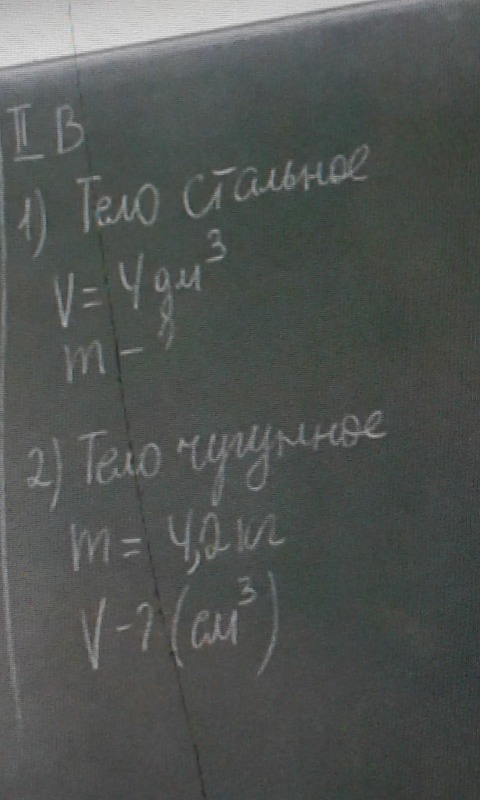 II В
1) Тело стальное
V = 4 дм³
m - ?
2) Тело чугунное
m = 4,2 кг
V - ? (см³)